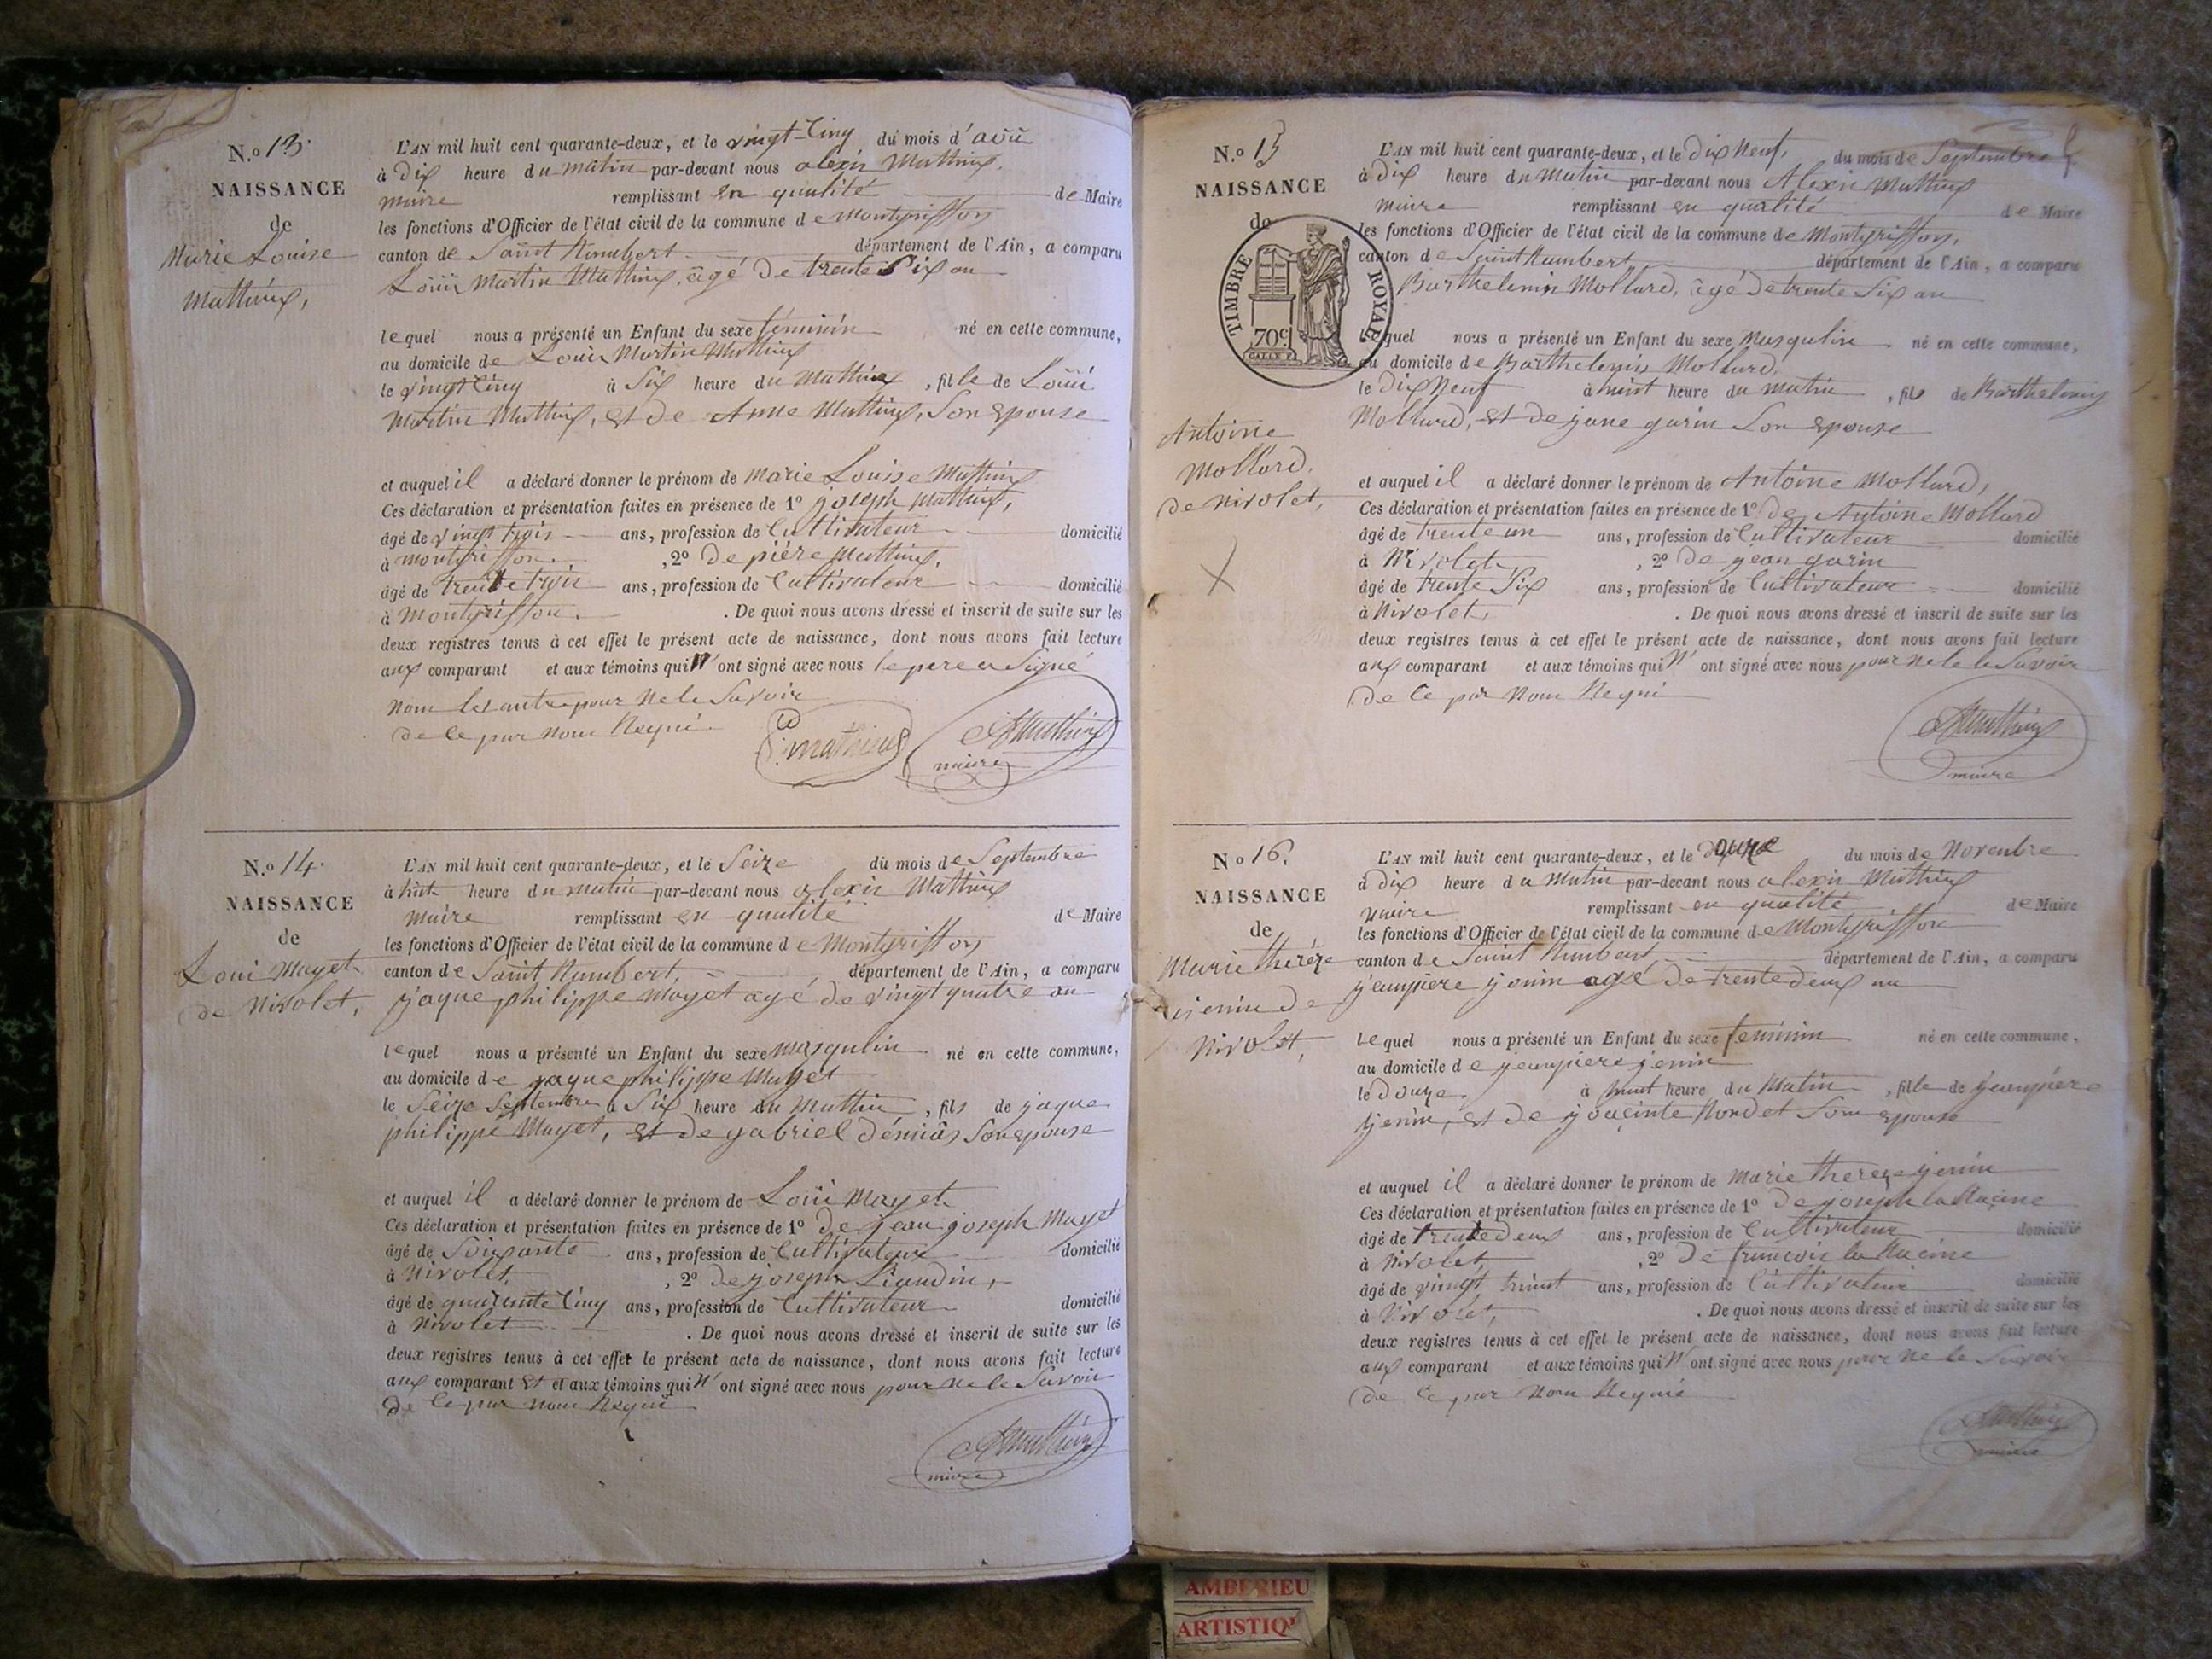 N.º 13.
NAISSANCE
de
Marie Louise
Mathieux,
L'AN mil huit cent quarante-deux, et le vingt-cinq du mois d'aoûi
à Dix heure du matin par-devant nous alexis Mathieux,
maire remplissant en qualité de Maire
les fonctions d'Officier de l'état civil de la commune de Montgriffon
canton de Saint Rambert département de l'Ain, a comparu
Louis Martin Mathieux, agé De trente Six an
lequel nous a présenté un Enfant du sexe féminin né en cette commune,
au domicile de Louis Martin Mathieux
le vingt cinq à Six heure du Mathin, fille de Louis
Martin Mathieux, et de Anne Mathieux, Son Epouse
et auquel il a déclaré donner le prénom de Marie Louise Mathieux
Ces déclaration et présentation faites en présence de 1º joseph Mathieux,
âgé de vingt trois ans, profession de Cultivateur domicilié
à Montgriffon, 2º De piére Mathieux,
âgé de trente trois ans, profession de Cultivateur domicilié
à Montgriffon. De quoi nous avons dressé et inscrit de suite sur les
deux registres tenus à cet effet le présent acte de naissance, dont nous avons fait lecture
aux comparant et aux témoins qui N'ont signé avec nous le pere a Signé
Nom les autre pour ne le Savoir
de ce par nous Requi.
mathieux
AMathieux
maire
N.º 14.
NAISSANCE
de
Loui Mayet
de Nivolet,
L'AN mil huit cent quarante-deux, et le Seize du mois de Septembre
à huit heure du matin par-devant nous alexis Mathieux
maire remplissant en qualité de Maire
les fonctions d'Officier de l'état civil de la commune de Montgriffon
canton de Saint Rambert, département de l'Ain, a comparu
jaque philippe Mayet agé de vingt quatre an
lequel nous a présenté un Enfant du sexe masqulin né en cette commune,
au domicile de jaque philippe Mayet
le Seize Septembre à Six heure du Mathin, fils de jaque
philippe Mayet, et de gabriel Son epouse
et auquel il a déclaré donner le prénom de Loui Mayet
Ces déclaration et présentation faites en présence de 1º De jean joseph Mayet
âgé de Soixante ans, profession de Cultivateur domicilié
à Nivolet, 2º De joseph
âgé de quarante cinq ans, profession de Cultivateur domicilié
à Nivolet. De quoi nous avons dressé et inscrit de suite sur les
deux registres tenus à cet effet le présent acte de naissance, dont nous avons fait lecture
aux comparant et et aux témoins qui N'ont signé avec nous pour ne le Savoir
de ce par nous Requi
AMathieux
maire
N.º 15
NAISSANCE
de
TIMBRE ROYAL
70 c.
Antoine
Mollard,
de Nivolet,
L'AN mil huit cent quarante-deux, et le Dix Neuf, du mois de Septembre
à Dix heure du Matin par-devant nous Alexis Mathieux
maire remplissant en qualité de Maire
les fonctions d'Officier de l'état civil de la commune de Montgriffon,
canton de Saint Rambert département de l'Ain, a comparu
Barthelemis Mollard, agé de trente Six an
lequel nous a présenté un Enfant du sexe Masqulin né en cette commune,
au domicile de Barthelemis Mollard,
le Dix Neuf à huit heure du matin, fils de Barthelemis
Mollard, et de jane garin Son Epouse
et auquel il a déclaré donner le prénom de Antoine Mollard,
Ces déclaration et présentation faites en présence de 1º De Antoine Mollard
âgé de trente un ans, profession de Cultivateur domicilié
à Nivolet, 2º De jean garin
âgé de trente Six ans, profession de Cultivateur domicilié
à Nivolet, . De quoi nous avons dressé et inscrit de suite sur les
deux registres tenus à cet effet le présent acte de naissance, dont nous avons fait lecture
aux comparant et aux témoins qui N'ont signé avec nous pour ne le le Savoir
de ce par nous Requi
AMathieux
maire
Nº 16.
NAISSANCE
de
Marie thereze
jenin de
Nivolet,
L'AN mil huit cent quarante-deux, et le douze du mois de Novembre
à Dix heure du Matin par-devant nous alexis Mathieux
maire remplissant en qualité de Maire
les fonctions d'Officier de l'état civil de la commune de Montgriffon
canton de Saint Rambert département de l'Ain, a comparu
jeanpiere jenin agé De trente deux an
lequel nous a présenté un Enfant du sexe feminin né en cette commune,
au domicile de jeanpiere jenin
le Douze à huit heure du Matin, fille de jeanpiere
jenin, et de Son epouse
et auquel il a déclaré donner le prénom de Marie thereze jenin
Ces déclaration et présentation faites en présence de 1º De joseph la Racine
âgé de trente deux ans, profession de Cultivateur domicilié
à Nivolet, 2º De francois la Racine
âgé de vingt huit ans, profession de Cultivateur domicilié
à Nivolet, . De quoi nous avons dressé et inscrit de suite sur les
deux registres tenus à cet effet le présent acte de naissance, dont nous avons fait lecture
aux comparant et aux témoins qui N'ont signé avec nous pour ne le Savoir
de ce par nous Requis
AMathieux
maire
AMBERIEU
ARTISTIQU